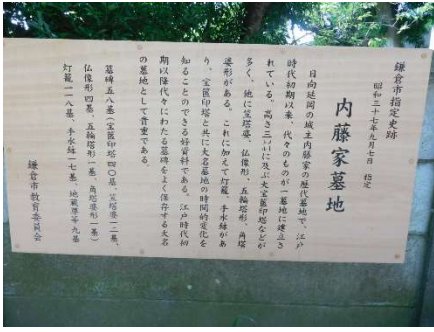 鎌倉市指定史跡
昭和三十七年九月七日 指定
内藤家墓地
日向延岡の城主内藤家の歴代墓地で、江戸
時代初期以来、代々のものが一墓地に建立さ
れている。高さ三㍍に及ぶ大宝篋印塔などが
多く、他に笠塔婆、仏像形、五輪塔形、角塔
婆形がある。これに加えて灯籠、手水鉢があ
り、宝篋印塔と共に大名墓地の時間的変化を
知ることのできる好資料である。江戸時代初
期以降代々にわたる墓碑をよく保存する大名
の墓地として貴重である。
墓碑五八基(宝篋印塔四〇基、笠塔婆一二基、
仏像形四基、五輪塔形一基、角塔婆形一基)
灯籠一一八基、手水鉢一七基、地蔵尊等九基
鎌倉市教育委員会